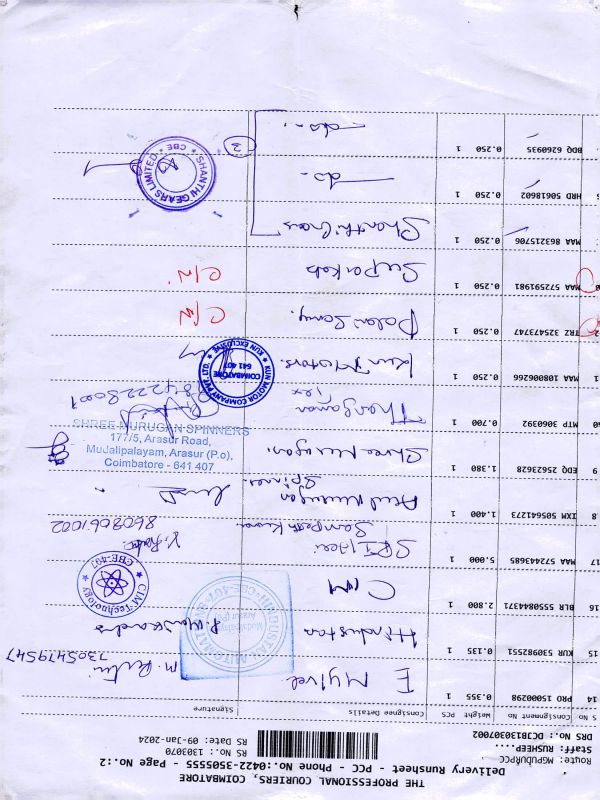 THE PROFESSIONAL COURIERS, COIMBATORE
Delivery Runsheet - PCC - Phone No.:0422-3505555 - Page No.:2
Route: MGPUDURPCC
Staff: RUSHEEP....
DRS No.: DCJB130307002
RS No.: 1303070
RS Date: 09-Jan-2024
S No Consignment No Weight PCS Consignee Details Signature
14 PRO 15000298 0.355 1 E Mylvel 7305479547
15 KUR 53082551 0.135 1 Hindustan
16 BLR 550844371 2.800 1 CIM
CIM Technology ★ CBE-407 ★
17 MAA 572443685 5.000 1 8608061002
8 IXM 505641273 1.400 1 Murugan Spinner
9 EDQ 25623628 1.380 1 Shree Murugan.
SHREE MURUGAN SPINNERS
177/5, Arasur Road,
MuJalipalayam, Arasur (P.o),
Coimbatore - 641 407
0 MTP 3060392 0.700 1 Thangaman Tex
1 MAA 108006266 0.250 1 Kun Motors.
KUN MOTOR COMPANY PVT. LTD. ★ KUN EXCLUSIVE ★
COIMBATORE
641 407
2 TRZ 32547374 0.250 1 Palani Samy. C/N
0 MAA 572591981 0.250 1 C/N
MAA 863215706 0.250 1 Shanthi Gears
HRD 50618602 0.250 1 -do-
BDQ 6260935 0.250 1 -do- 3
SHANTHI GEARS LIMITED ★ CBE ★